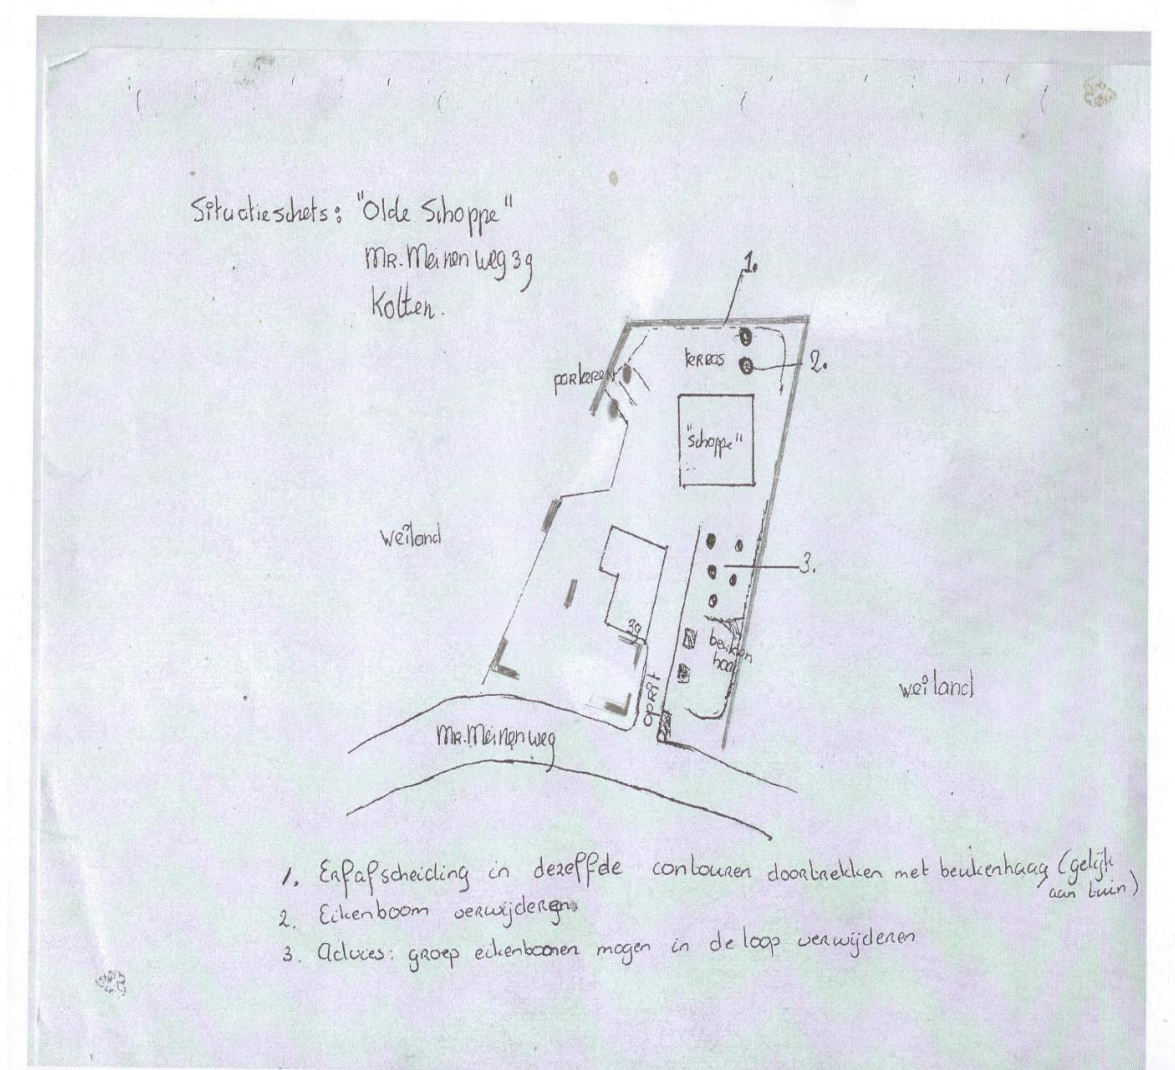 Situatieschets: "Olde Schoppe"
MR. Meinen weg 3g
Kotten.
1.
terras
2.
parkeren
"schoppe"
weiland
3.
3g
beuken
haag
oprit
weiland
MR. Meinenweg
1. Erfafscheiding in dezelfde contouren doortrekken met beukenhaag (gelijk
aan tuin)
2. Eikenboom verwijderen
3. Advies: groep eikenbomen mogen in de loop verwijderen